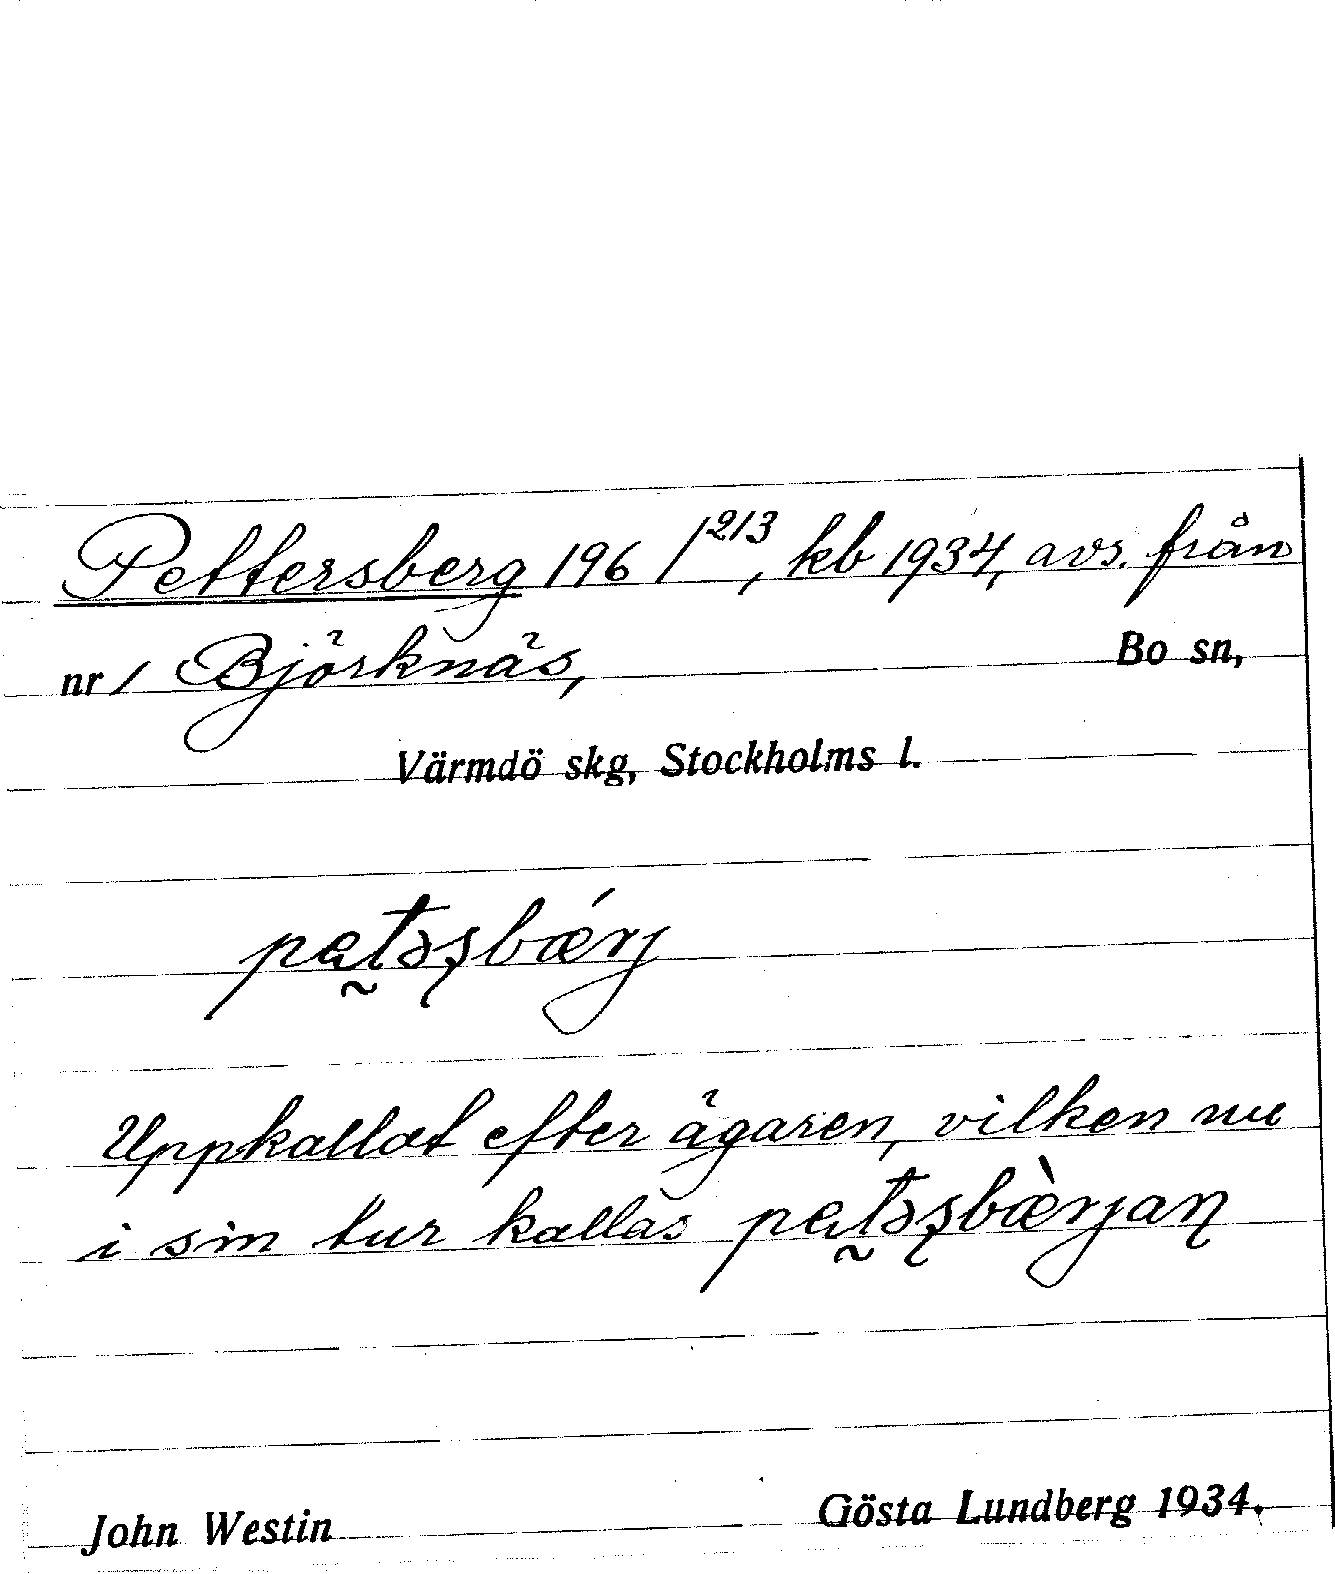 Pettersberg 196 1²¹³, kb 1934, avs. från
nr 1 Björknäs, Bo sn,
Värmdö skg, Stockholms l.
pet̰əʂbǽrj
Uppkallat efter ägaren, vilken nu
i sin tur kallas pet̰əʂbæ̀rjaɳ
John Westin Gösta Lundberg 1934.